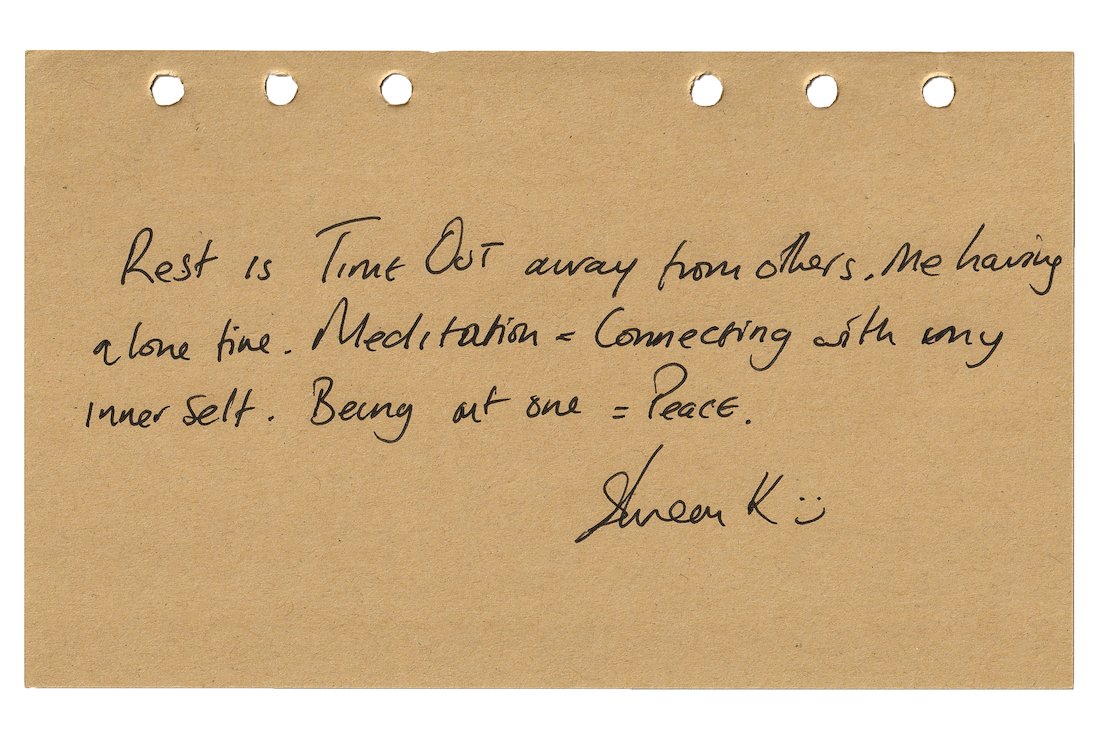 Rest is Time Out away from others. Me having
alone time. Meditation = Connecting with my
inner self. Being at one = Peace.
K :)